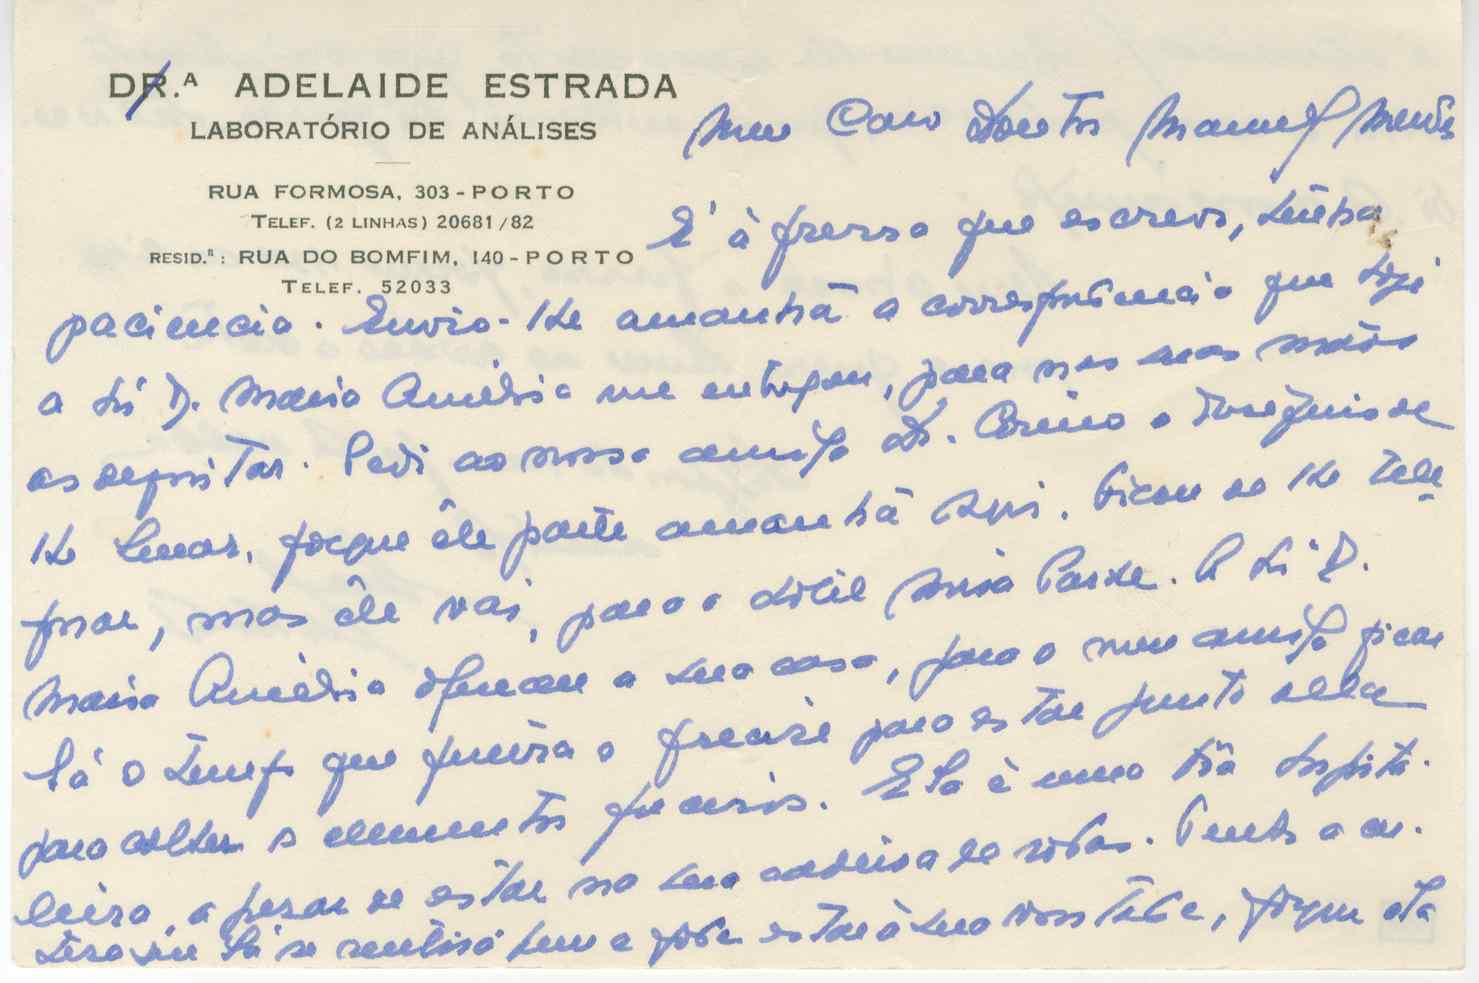 DR.ª ADELAIDE ESTRADA
LABORATÓRIO DE ANÁLISES
RUA FORMOSA, 303 - PORTO
TELEF. (2 LINHAS) 20681/82
RESID.ª: RUA DO BOMFIM, 140 - PORTO
TELEF. 52033
Meu Caro Doutor Manuel Mendes
É à pressa que escrevo, tenha
paciencia. Envio-lhe amanhã a correspondencia que hoje
a Sr.ª D. Maria Amélia me entregou, para nas suas mãos
as depositar. Pedi ao nosso amigo Dr. Corino o obsequio de
lhe levar, porque êle parte amanhã. Ficou de lhe tele-
fonar, mas êle vai, para o Hotel Suisse. A Sr.ª D.
Maria Amélia ofereceu a sua casa, para o meu amigo ficar
lá o tempo que queira e precise para estar junto dela
para colher os elementos precisos. Ela é uma tão hospita-
leira, apesar de estar na sua cadeira de rodas. Penso a
lá se sentirá bem e pode estar à sua vontade, porque ela